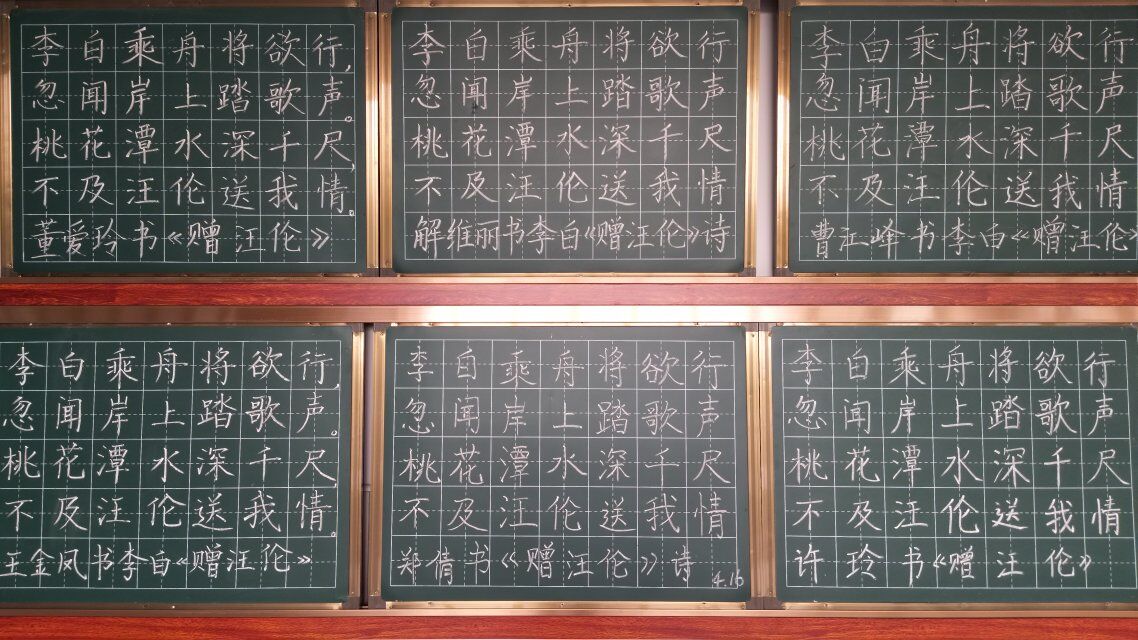 李白乘舟将欲行，
忽闻岸上踏歌声。
桃花潭水深千尺，
不及汪伦送我情。
董爱玲书《赠汪伦》
李白乘舟将欲行
忽闻岸上踏歌声
桃花潭水深千尺
不及汪伦送我情
解维丽书李白《赠汪伦》诗
李白乘舟将欲行
忽闻岸上踏歌声
桃花潭水深千尺
不及汪伦送我情
曹江峰书李白《赠汪伦》
李白乘舟将欲行，
忽闻岸上踏歌声。
桃花潭水深千尺
不及汪伦送我情。
王金凤书李白《赠汪伦》
李白乘舟将欲行
忽闻岸上踏歌声
桃花潭水深千尺
不及汪伦送我情
郑倩书《赠汪伦》诗 4.16
李白乘舟将欲行
忽闻岸上踏歌声
桃花潭水深千尺
不及汪伦送我情
许玲书《赠汪伦》